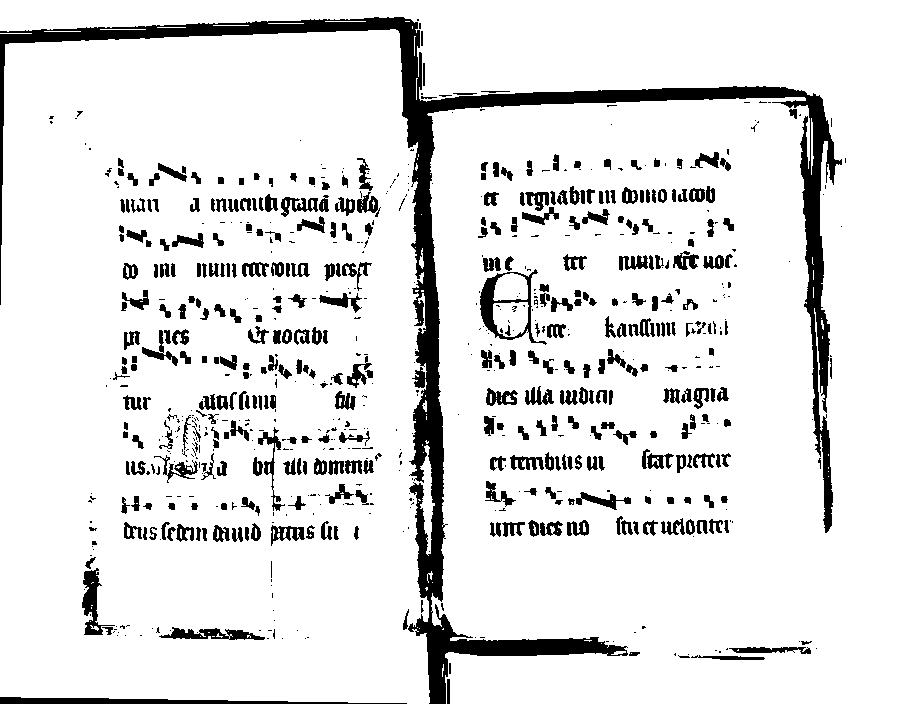 mari a invenisti graciā apud
do mi num ecce conci pies et
pa ries Et vocabi
tur altissimi fili
us. a bit illi dominus
deus sedem david patris su i
et regnabit in domo iacob
in e ter num
Ecce karissimi
dies illa iudicii magna
et terribilis in stat preter
unt dies no stri et velociter